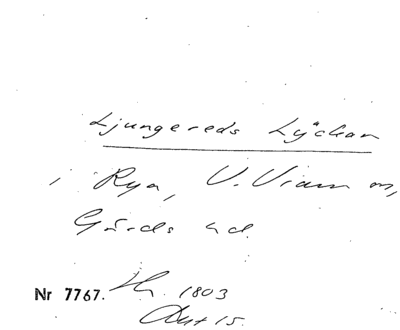 Ljungereds Lyckan
i Rya, V. Vram sn,
Gärds hd.
Nr 7767. 1803
Okt 15.